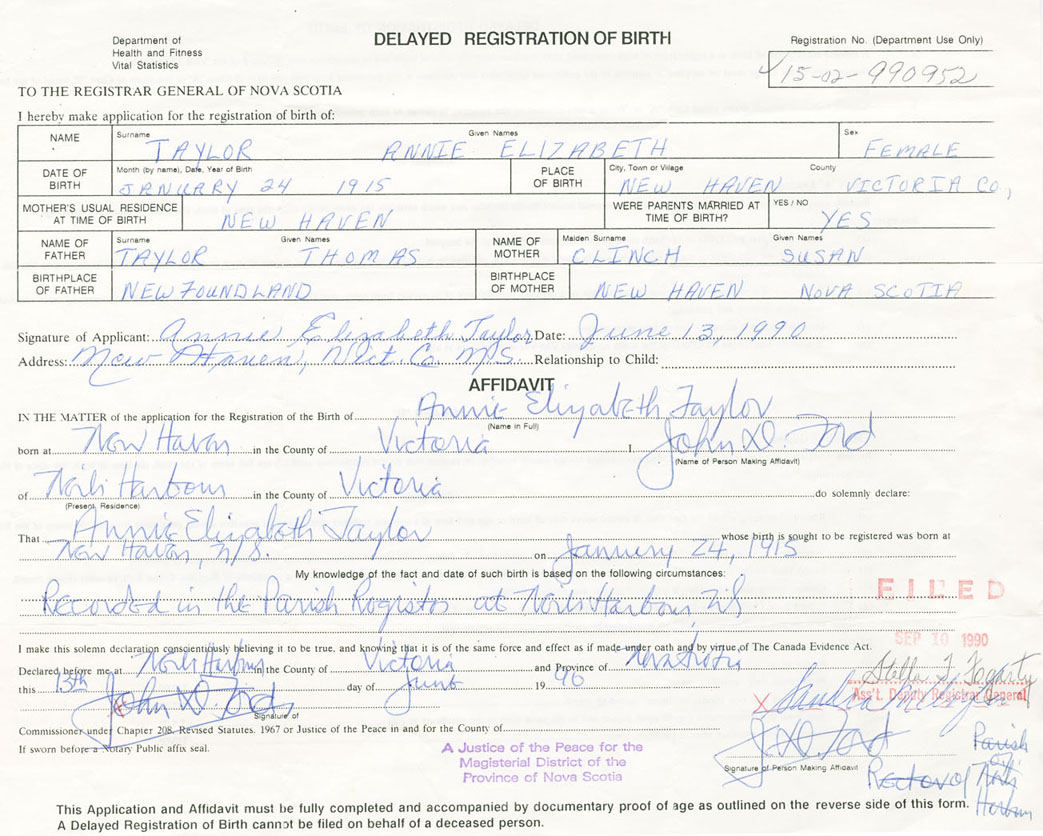 Department of
Health and Fitness
Vital Statistics
DELAYED REGISTRATION OF BIRTH
Registration No. (Department Use Only)
15-02-990952
TO THE REGISTRAR GENERAL OF NOVA SCOTIA
I hereby make application for the registration of birth of:
NAME Surname TAYLOR Given Names ANNIE ELIZABETH Sex FEMALE
DATE OF BIRTH Month (by name), Date, Year of Birth JANUARY 24 1915 PLACE OF BIRTH City, Town or Village NEW HAVEN County VICTORIA CO,
MOTHER'S USUAL RESIDENCE AT TIME OF BIRTH NEW HAVEN WERE PARENTS MARRIED AT TIME OF BIRTH? YES / NO YES
NAME OF FATHER Surname TAYLOR Given Names THOMAS NAME OF MOTHER Maiden Surname CLINCH Given Names SUSAN
BIRTHPLACE OF FATHER NEWFOUNDLAND BIRTHPLACE OF MOTHER NEW HAVEN NOVA SCOTIA
Signature of Applicant: Annie Elizabeth Taylor Date: June 13, 1990
Address: New Haven, Vict. Co. N.S. Relationship to Child:
AFFIDAVIT
IN THE MATTER of the application for the Registration of the Birth of Annie Elizabeth Taylor
(Name in Full)
born at New Haven in the County of Victoria I, John D. Ford
(Name of Person Making Affidavit)
of Neils Harbour in the County of Victoria do solemnly declare:
(Present Residence)
That Annie Elizabeth Taylor whose birth is sought to be registered was born at
New Haven, N.S. on January 24, 1915
My knowledge of the fact and date of such birth is based on the following circumstances:
Recorded in the Parish Register at Neils Harbour, N.S.
FILED
SEP 10 1990
I make this solemn declaration conscientiously believing it to be true, and knowing that it is of the same force and effect as if made under oath and by virtue of The Canada Evidence Act.
Declared before me at Neils Harbour in the County of Victoria and Province of Nova Scotia
this 13th day of June 19 90
Stella T. Fogarty
Ass't. Deputy Registrar General
John D. Ford
Signature of
Commissioner under Chapter 208, Revised Statutes, 1967 or Justice of the Peace in and for the County of
If sworn before a Notary Public affix seal.
A Justice of the Peace for the
Magisterial District of the
Province of Nova Scotia
J D Ford
Signature of Person Making Affidavit
Rector of Parish of Neils Harbour
This Application and Affidavit must be fully completed and accompanied by documentary proof of age as outlined on the reverse side of this form.
A Delayed Registration of Birth cannot be filed on behalf of a deceased person.